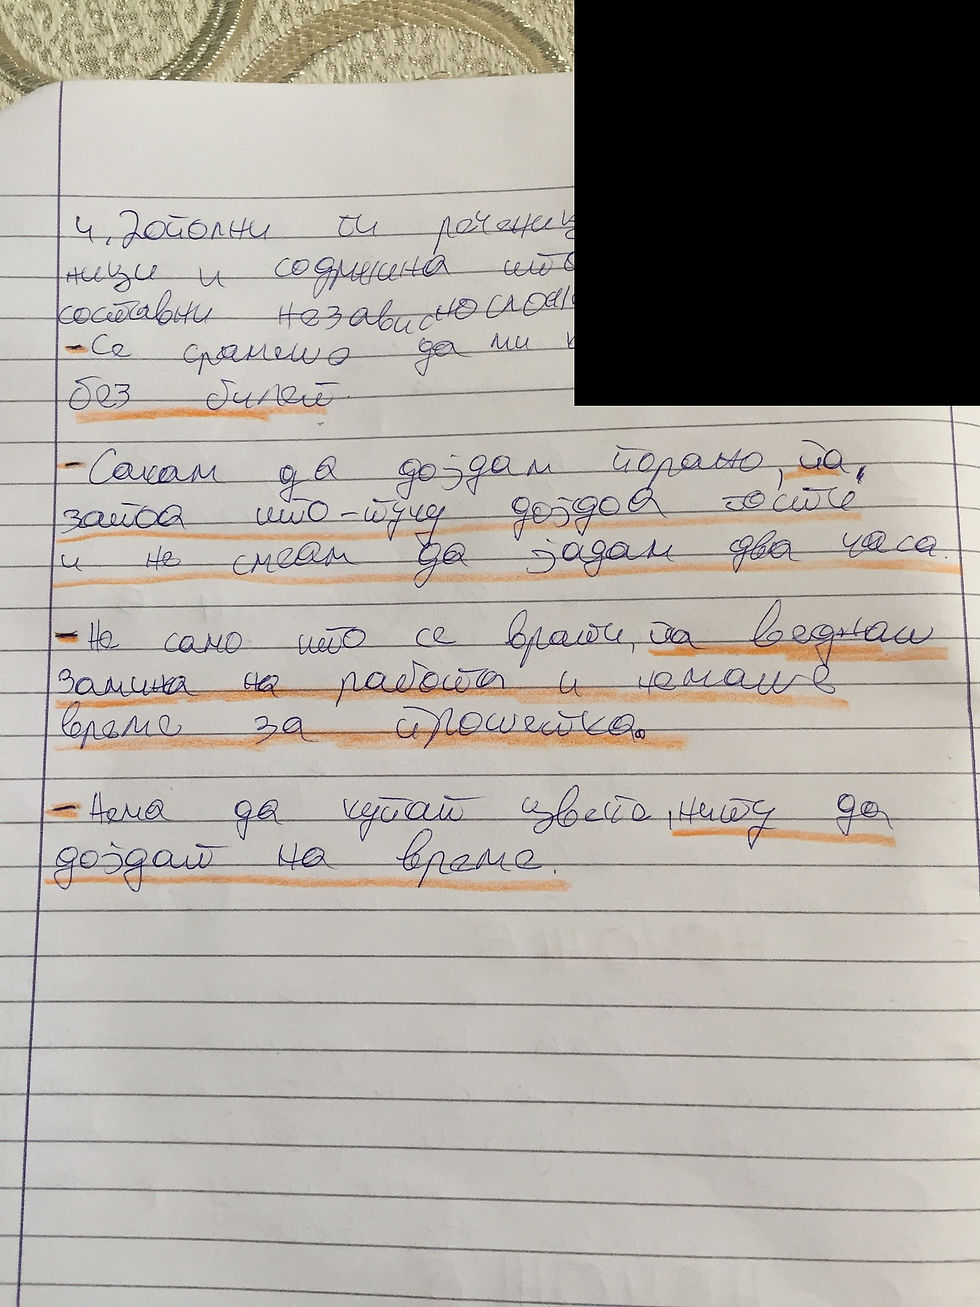 4. Дополни ги речениц
ници и содржина што
составни независнослож
- Се срамеше да ми
без билет.
- Сакам да дојдам порано, па,
затоа што-туку дојдоа гости
и не смеам да јадам два часа.
- Не само што се врати, па веднаш
замина на работа и немаше
време за прошетка.
- Нема да купат цвеќе, ниту да
дојдат на време.